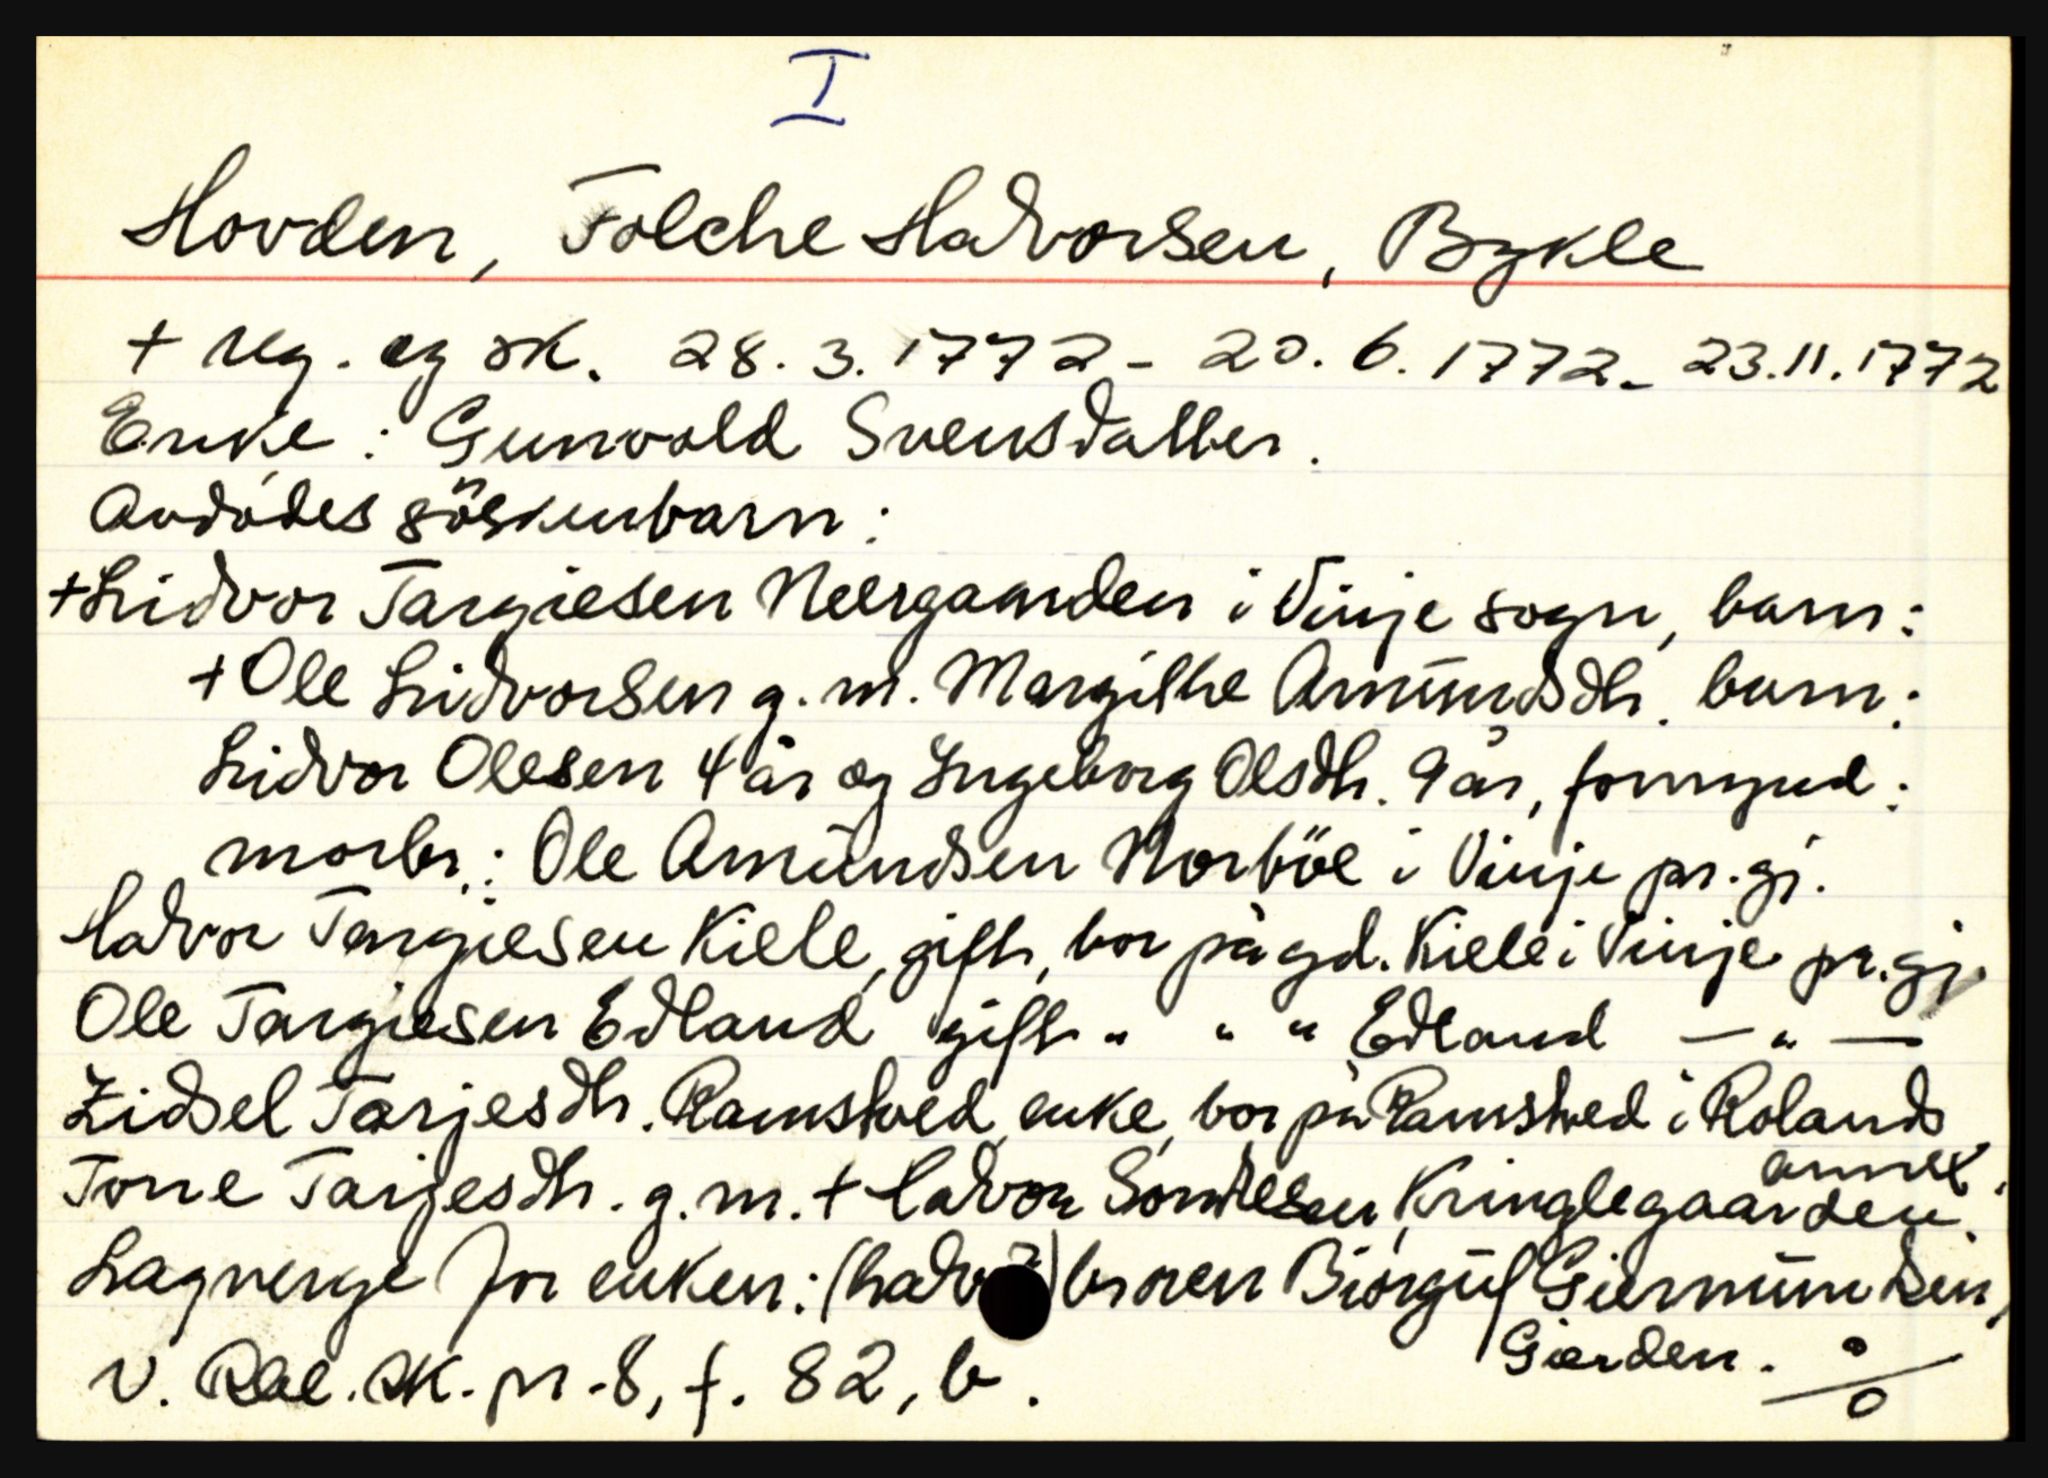 I
Hovden, Folche Halvorsen, Bykle
+ reg. og sk. 28.3.1772 - 20.6.1772 - 23.11.1772
Enke: Gunvold Svensdatter.
Avdødes söskenbarn:
+ Lidvor Targiesen Neergaarden i Vinje sogn, barn:
+ Ole Lidvorsen g.m. Margithe Amŭndsdtr. barn:
Lidvor Olesen 4 år og Ingeborg Olsdtr. 9 år, formynd:
morbr.: Ole Amŭndsen Norböe i Vinje pr.gj.
Halvor Targiesen Kiele, gift, bor på gd. Kiele i Vinje pr.gj.
Ole Targiesen Edland gift " " " Edland — " —
Zidsel Tarjesdtr. Ramsted, enke, bor på Ramsted i Rolands
annex.
Tone Tarjesdtr. g.m. + Halvor Kringlegaarden.
Lagverge for enken: broren Biørgŭf Giermŭndsen,
Gierden. %
v. Rbl. sk. pr. 8, f. 82, b.